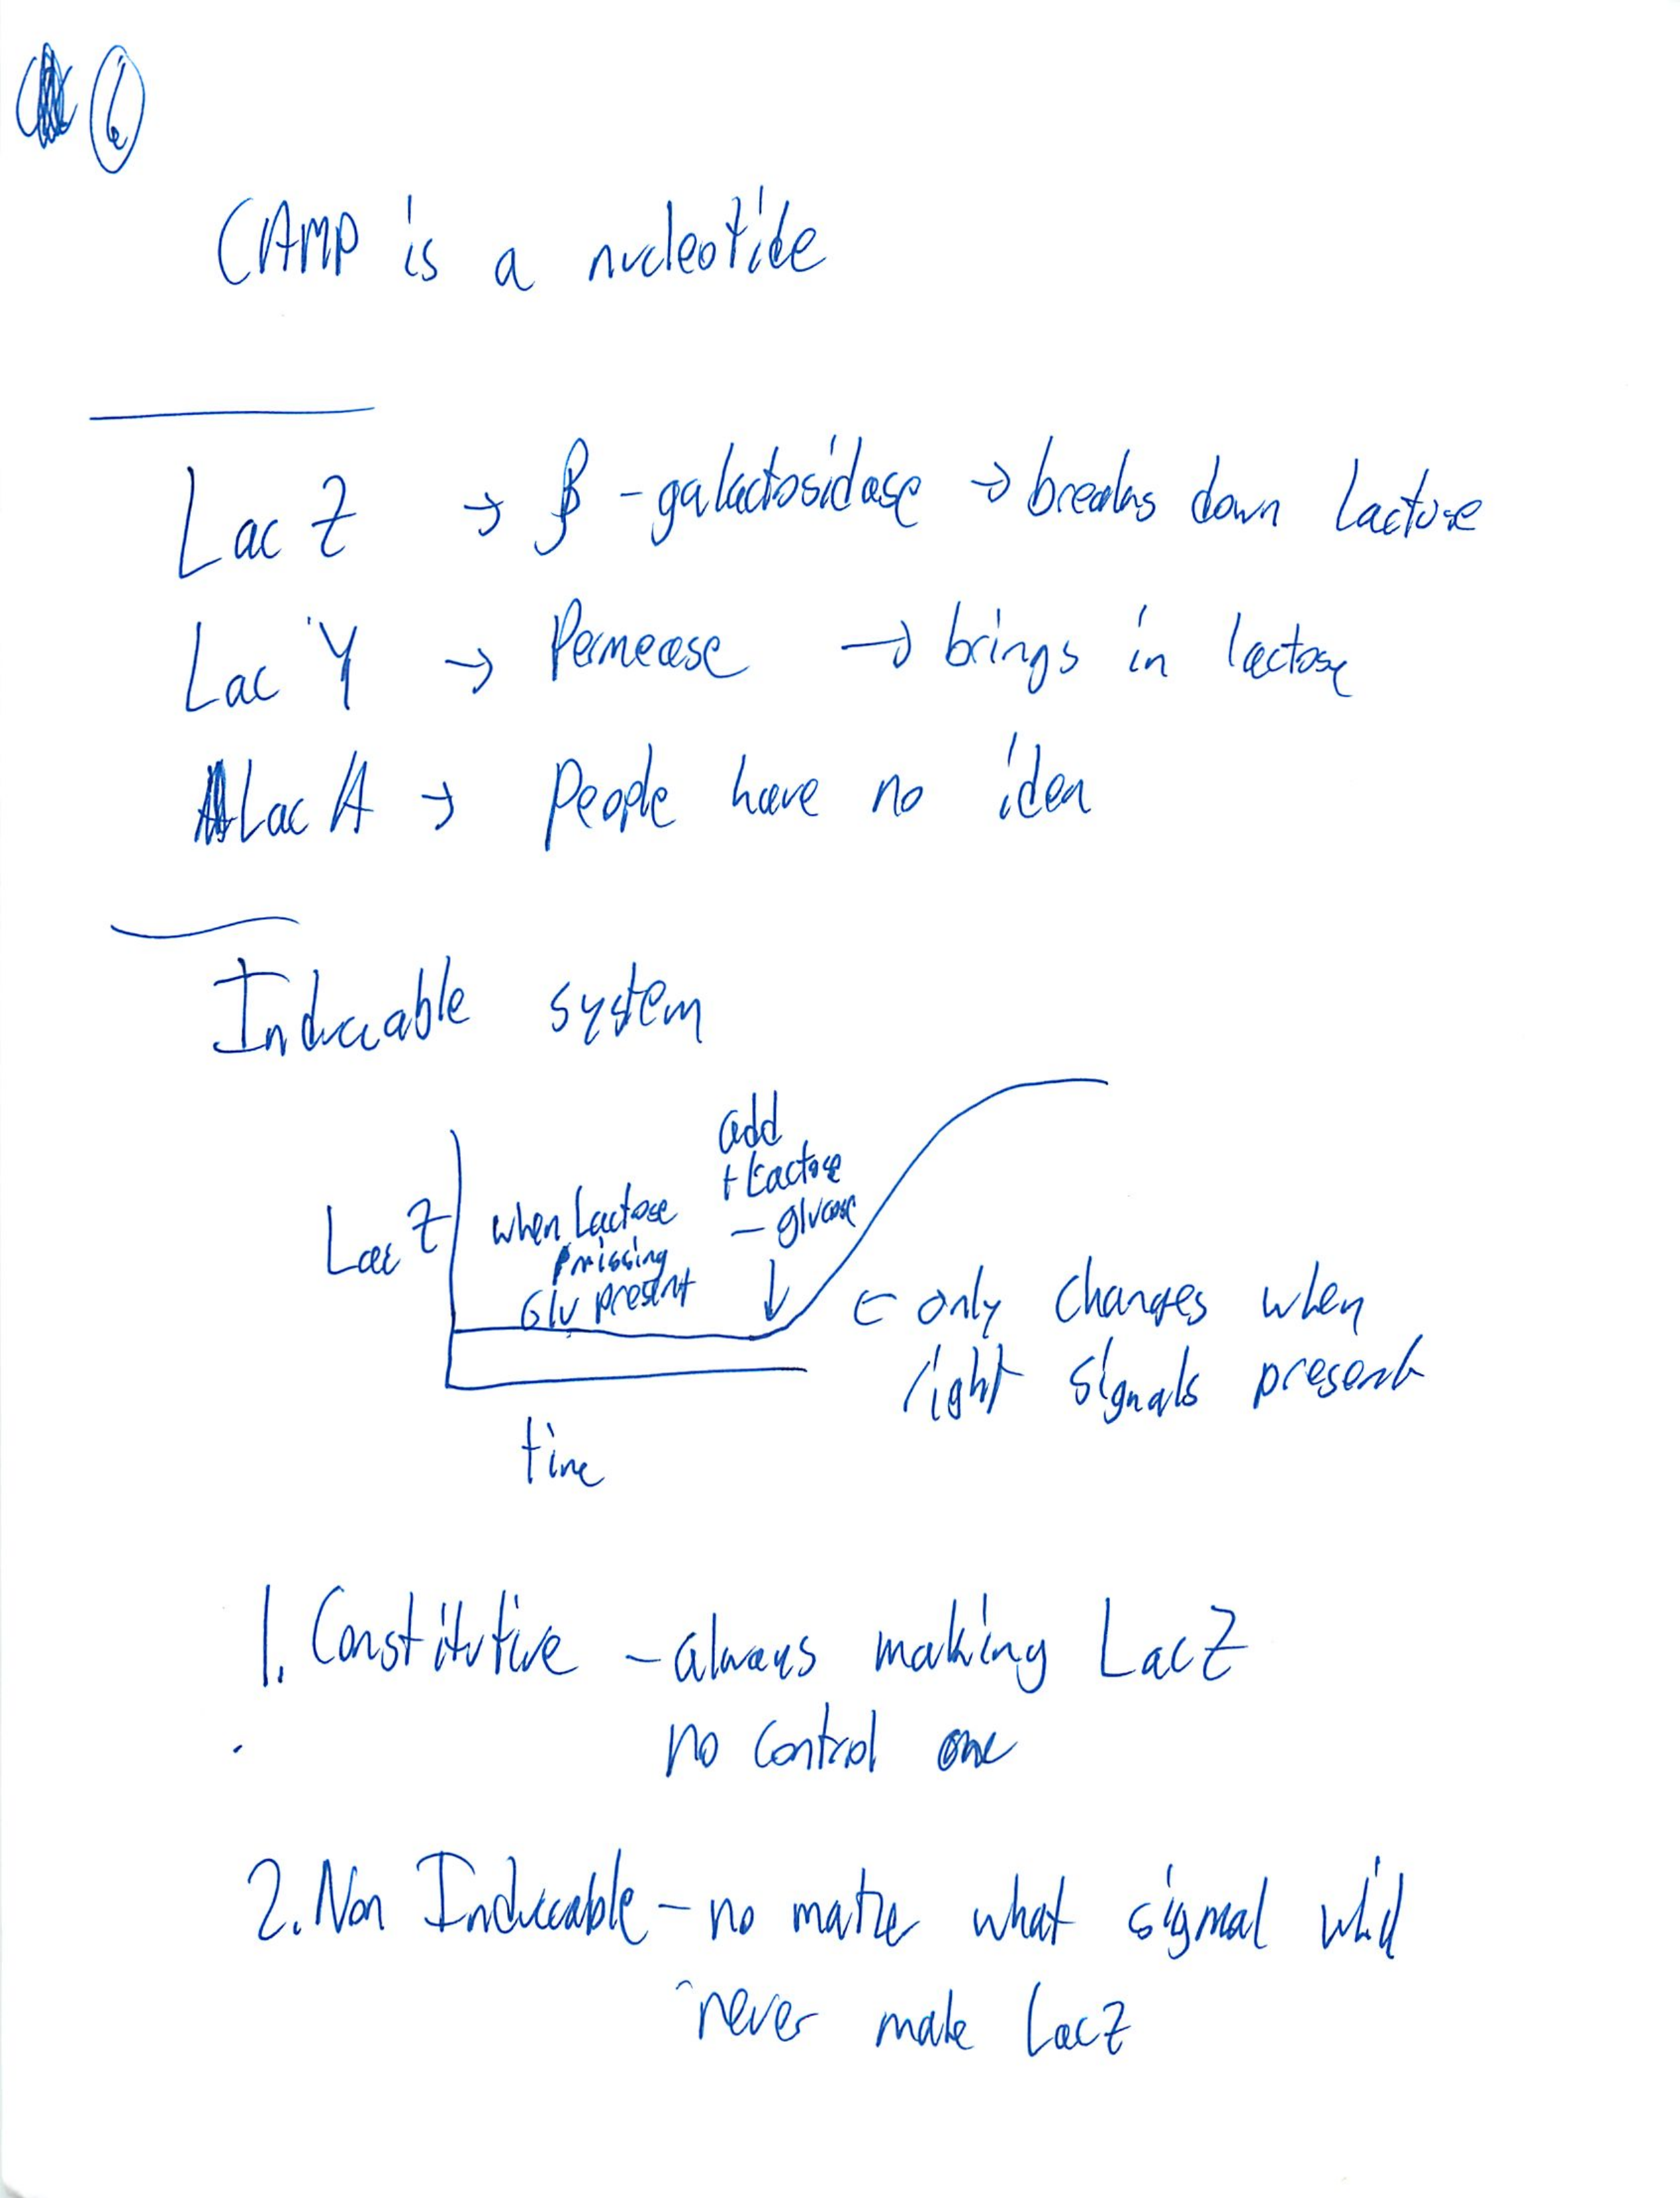 6
CAMP is a nucleotide
Lac Z → β - galactosidase → breaks down lactose
Lac Y → Permease → brings in lactose
Lac A → People have no idea
Inducable system
add
+ Lactose
- glucose
when Lactose
missing
Glu present
Lac Z
← only changes when
right signals present
time
1. Constitutive - always making LacZ
no control one
2. Non Inducable - no matter what signal will
never make LacZ